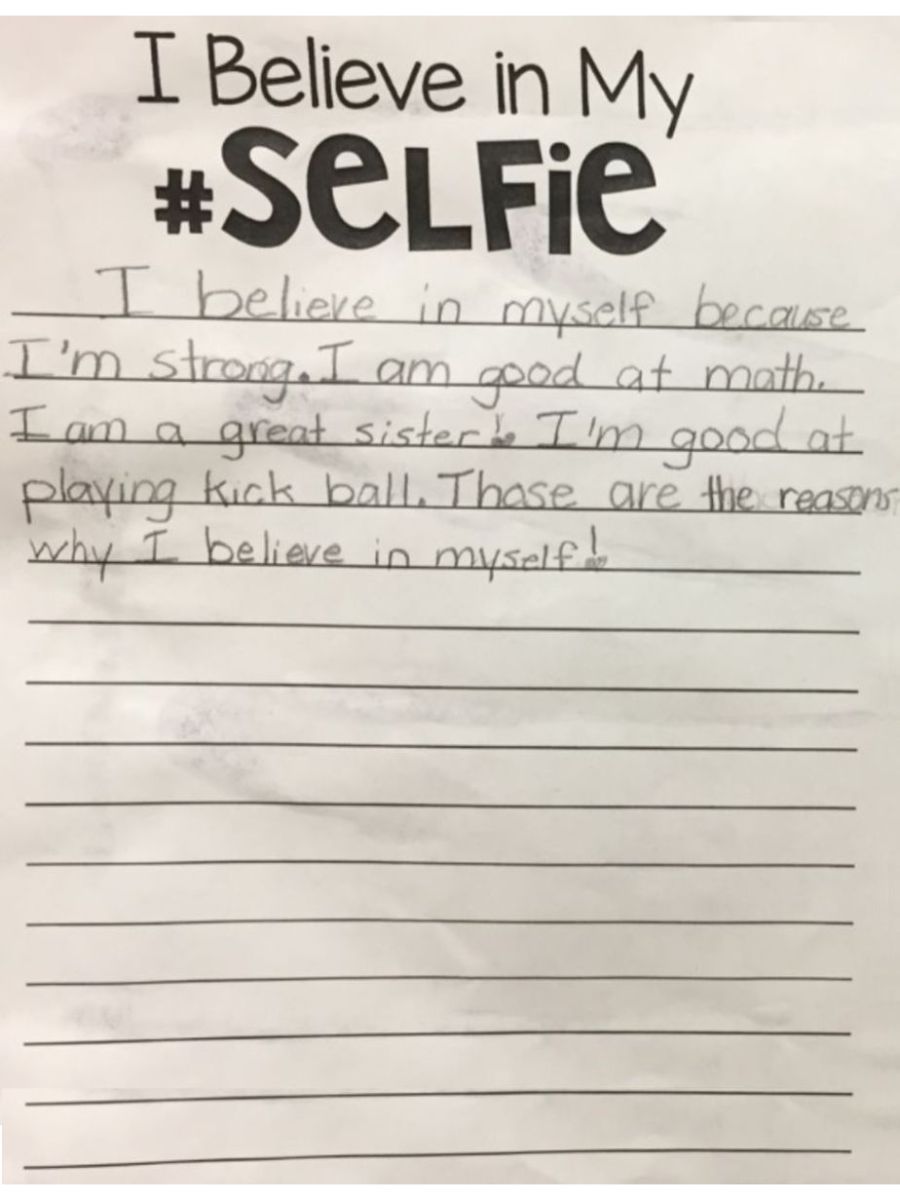 I Believe in My
#SeLFie
I believe in myself because
I'm strong. I am good at math.
I am a great sister! I'm good at
playing kick ball. Those are the reasons
why I believe in myself!